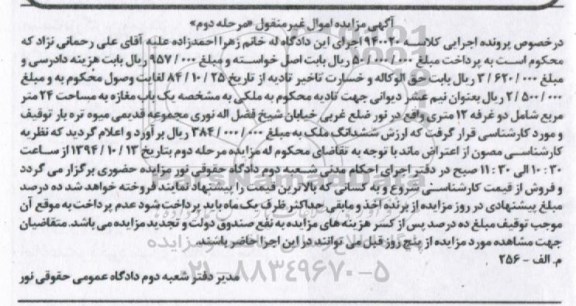 آگهی مزایده اموال غیر منقول «مرحله دوم»
در خصوص پرونده اجرایی کلاسه ۹۴۰۰۲۰ اجرای این دادگاه له خانم زهرا احمدزاده علیه آقای علی رحمانی نژاد که
محکوم است به پرداخت مبلغ ۵۰/۰۰۰/۰۰۰ ریال بابت اصل خواسته و مبلغ ۹۵۷/۰۰۰ ریال بابت هزینه دادرسی و
مبلغ ۳/۶۲۰/۰۰۰ ریال بابت حق الوکاله و خسارت تاخیر تادیه از تاریخ ۸۴/۱۰/۲۵ لغایت وصول محکوم به و مبلغ
۲/۵۰۰/۰۰۰ ریال بعنوان نیم عشر دیوانی جهت تادیه محکوم به ملکی به مشخصه یک باب مغازه به مساحت ۲۴ متر
مربع شامل دو غرفه ۱۲ متری واقع در نور ضلع غربی خیابان شیخ فضل اله نوری مجموعه قدیمی میوه تره بار توقیف
و مورد کارشناسی قرار گرفت که ارزش ششدانگ ملک به مبلغ ۳۸۴/۰۰۰/۰۰۰ ریال برآورد و اعلام گردید که نظریه
کارشناسی مصون از اعتراض ماند با توجه به تقاضای محکوم له مزایده مرحله دوم بتاریخ ۱۳۹۴/۱۰/۱۳ از ساعت
۱۰:۳۰ الی ۱۱:۳۰ صبح در دفتر اجرای احکام مدنی شعبه دوم دادگاه حقوقی نور مزایده حضوری برگزار می گردد
و فروش از قیمت کارشناسی شروع و به کسانی که بالاترین قیمت را پیشنهاد نمایند فروخته خواهد شد ده درصد
مبلغ پیشنهادی در روز مزایده از برنده اخذ و مابقی حداکثر ظرف یک ماه باید پرداخت شود عدم پرداخت به موقع آن
موجب توقیف مبلغ ده درصد پس از کسر هزینه های مزایده به نفع صندوق دولت و تجدید مزایده می باشد. متقاضیان
جهت مشاهده مورد مزایده از پنج روز قبل می توانند در این اجرا حاضر باشند.
م. الف - ۲۵۶
۰۲۱-۸۸۳۴۹۶۷۰-۵
مدیر دفتر شعبه دوم دادگاه عمومی حقوقی نور